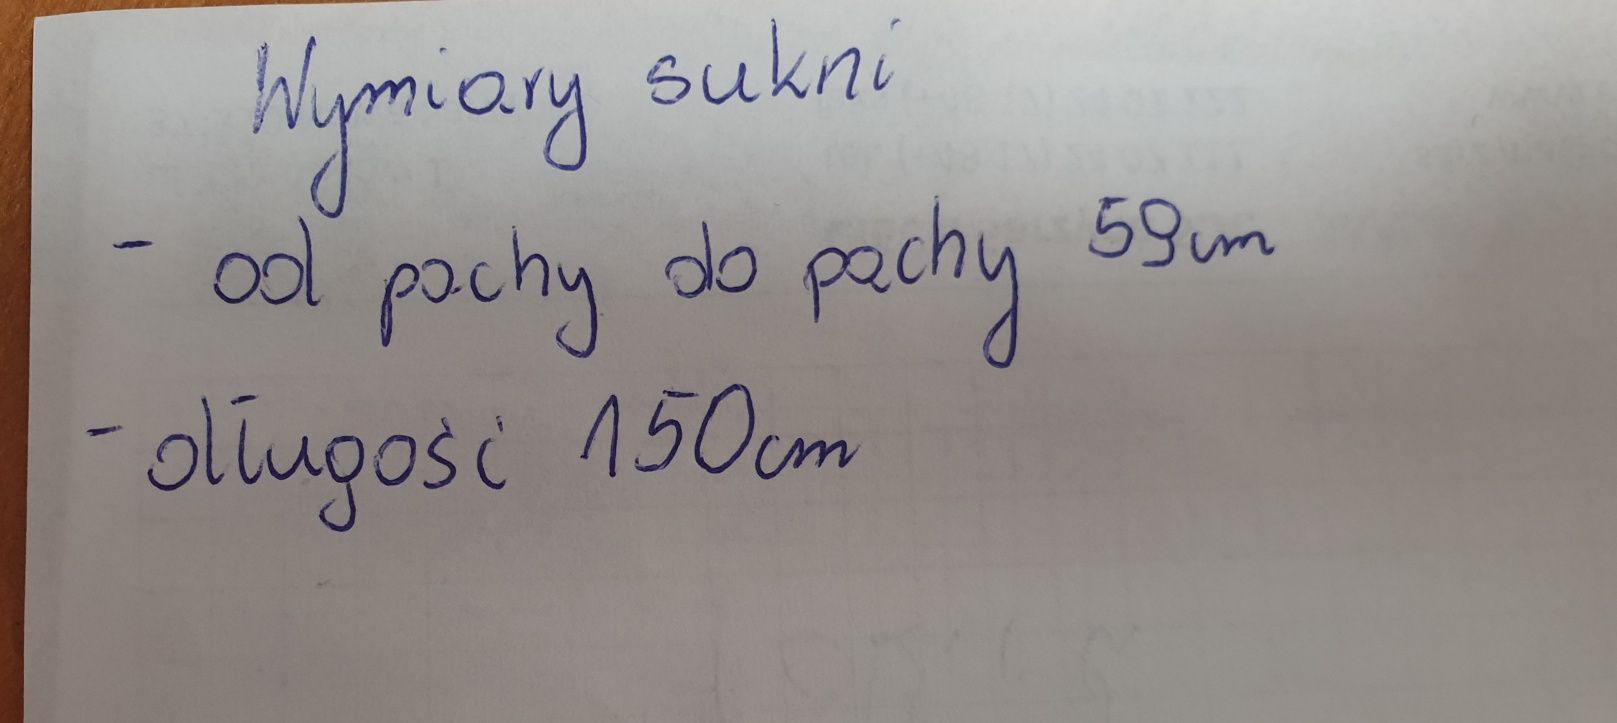 Wymiary sukni
- od pachy do pachy 59cm
- długość 150cm